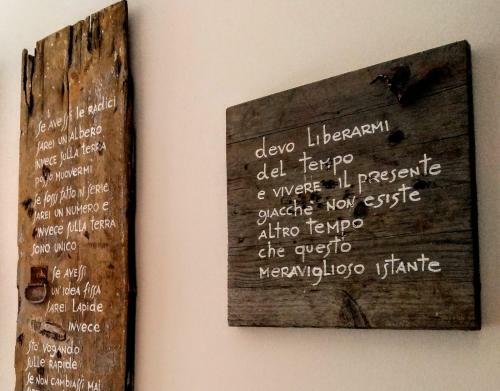 se avessi le radici
sarei un albero
invece sulla terra
posso muovermi
se fossi fatto in serie
sarei un numero e
invece sulla terra
sono unico
se avessi
un'idea fissa
sarei lapide
invece
sto vogando
sulle rapide
se non cambiassi mai
devo liberarmi
del tempo
e vivere il presente
giacche non esiste
altro tempo
che questo
meraviglioso istante